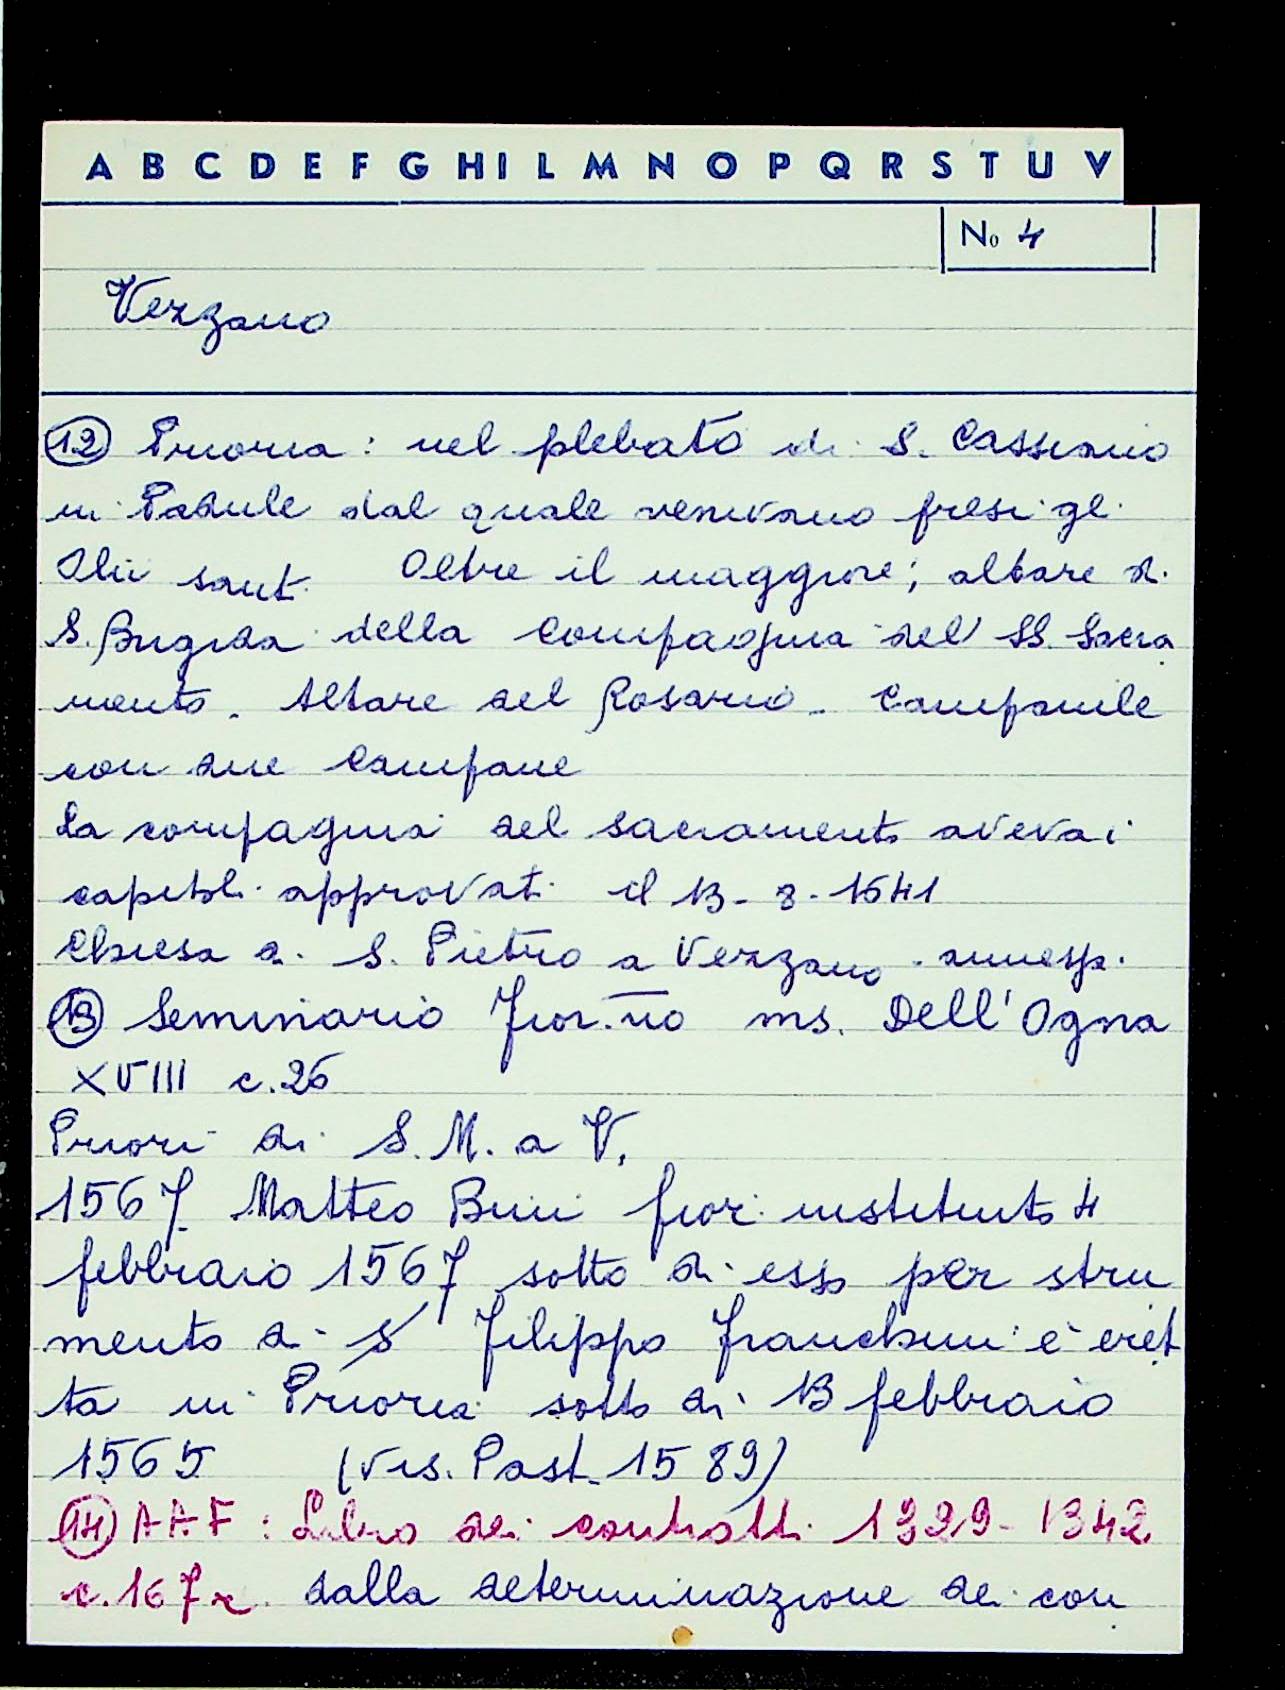 A B C D E F G H I L M N O P Q R S T U V
No 4
Vezzano
12 Prioria: nel plebato di S. Cassiano
in Padule dal quale venivano presi gli
Olii sant. Oltre il maggiore; altare di
S. Brigida della Compagnia del SS. Sacra
mento. Altare del Rosario. Campanile
con due Campane
La compagnia del sacramento aveva i
capitoli approvati il 13-8-1541
Chiesa di S. Pietro a Vezzano
13 Seminario Fior.no ms. Dell'Ogna
XVIII c.26
Priori di S. M. a V.
1567 Matteo Bini fior. instituito 4
febbraio 1567 sotto di esso per stru
mento di S Filippo Franchini è eret
ta in Prioria sotto di 13 febbraio
1565 (Vis. Past. 1589)
14 AAF: Libro dei contratti 1339-1342
c.167r. dalla determinazione dei con